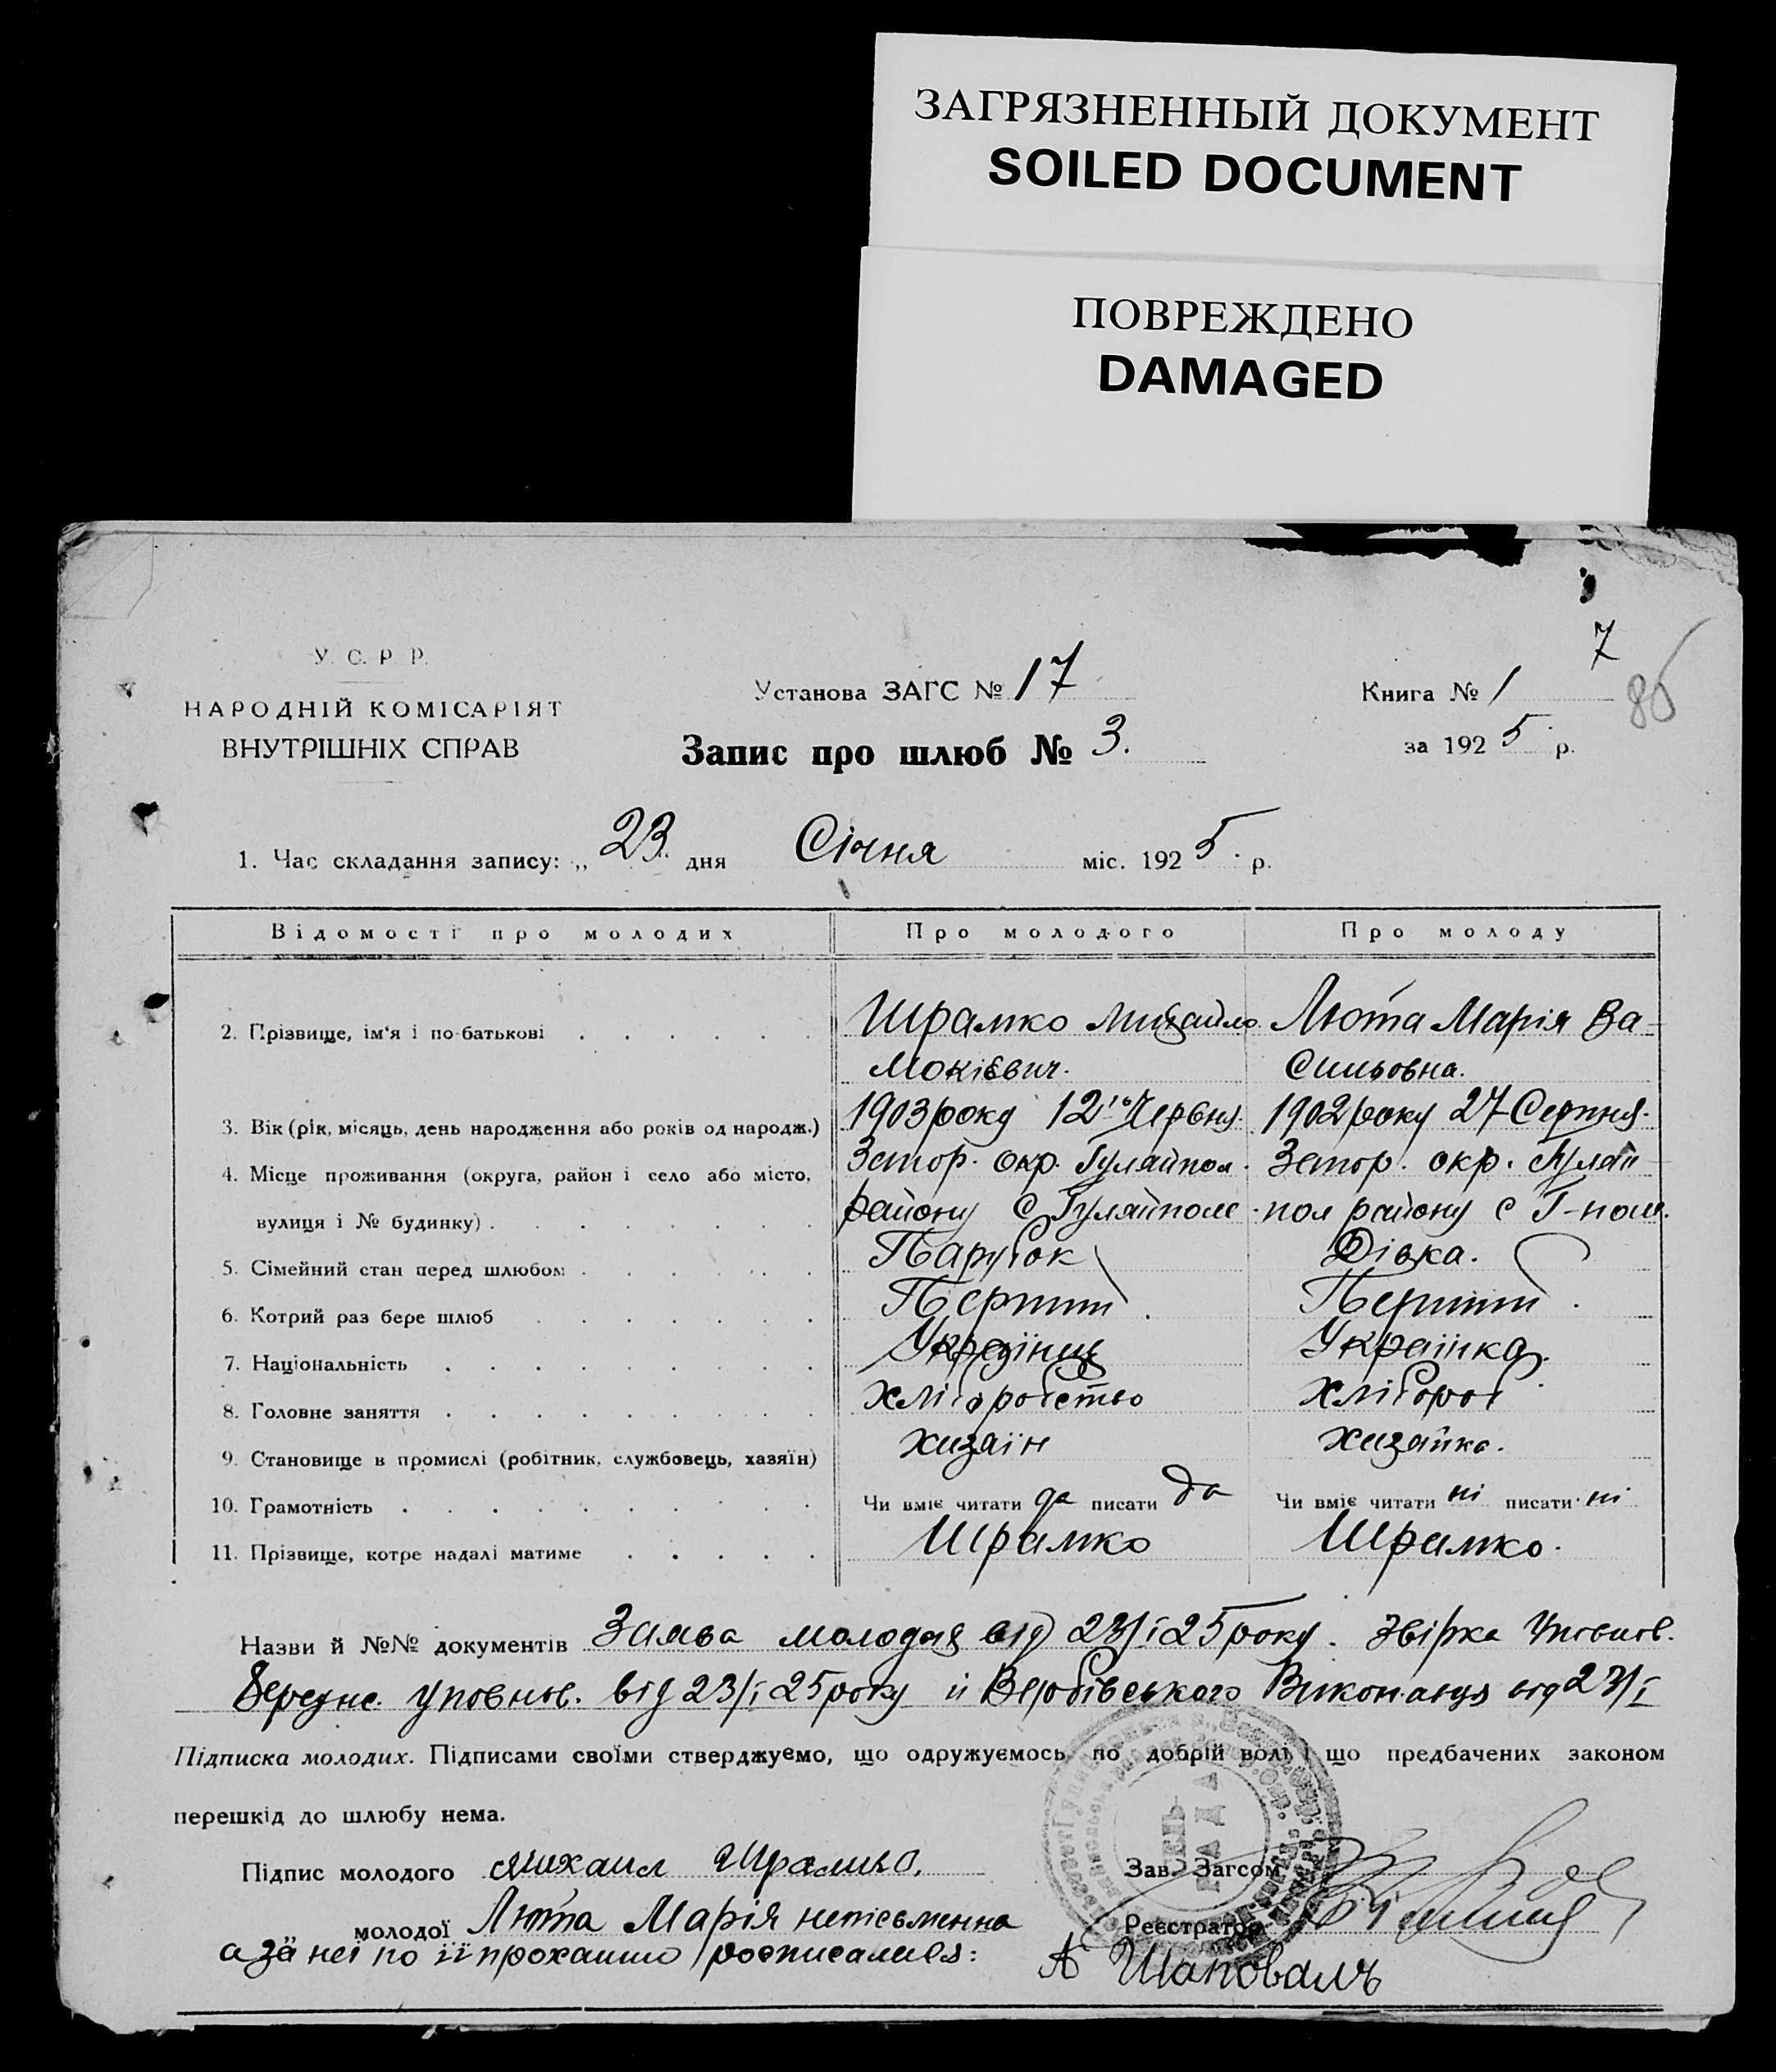 ЗАГРЯЗНЕННЫЙ ДОКУМЕНТ
SOILED DOCUMENT
ПОВРЕЖДЕНО
DAMAGED
7
86
У. С. Р. Р.
НАРОДНІЙ КОМІСАРІЯТ
ВНУТРІШНІХ СПРАВ
Установа ЗАГС № 17
Книга № 1
Запис про шлюб № 3.
за 1925 р.
1. Час складання запису: „ 23 дня Січня міс. 1925. р.
Відомості про молодих Про молодого Про молоду
2. Прізвище, ім'я і по-батькові Шрамко Михайло Люта Марія Ва-
Мокієвич. Сильовна.
3. Вік (рік, місяць, день народження або років од народж.) 1903 року 12го Червня. 1902 року 27 Серпня.
4. Місце проживання (округа, район і село або місто, Запор. окр. Гуляйпол. Запор. окр. Гуляй
вулиця і № будинку) району С Гуляйполе пол району с Г-поле.
5. Сімейний стан перед шлюбом Парубок Дівка.
6. Котрий раз бере шлюб Перший Перший
7. Національність Українець Українка.
8. Головне заняття Хліборобство Хлібороб
9. Становище в промислі (робітник, службовець, хазяїн) Хазаїн Хазайка.
10. Грамотність Чи вміє читати да писати да Чи вміє читати ні писати ні
11. Прізвище, котре надалі матиме Шрамко Шрамко.
Назви й №№ документів Заява молодих від 23/І 25 року. Звірка
уповнов. від 23/І 25 року й Вербівського Виконавця від 23/І
Підписка молодих. Підписами своїми стверджуємо, що одружуємось по добрій волі і що предбачених законом
перешкід до шлюбу нема.
Підпис молодого Михаил Шрамко. Зав. Загсом
молодої Люта Марія неписьменна Реєстратор
а за неї по її проханню росписался: А Шаповалъ
РАДА